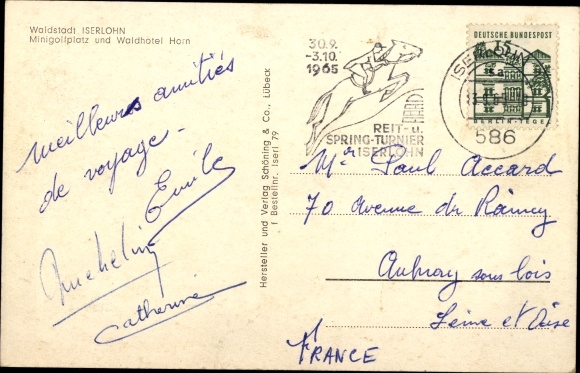 Waldstadt ISERLOHN
Minigolfplatz und Waldhotel Horn
meilleures amitiés
de voyage -
Emile
Micheline
Catherine
Hersteller und Verlag Schöning & Co., Lübeck
f Bestellnr. Iserl 79
30.9.
-3.10.
1965
REIT- u.
SPRING-TURNIER
ISERLOHN
DEUTSCHE BUNDESPOST
15
BERLIN-TEGEL
ISERLOHN
586
Mr Paul Accard
70 Avenue du Raincy
Aulnay sous bois
Seine et Oise
FRANCE